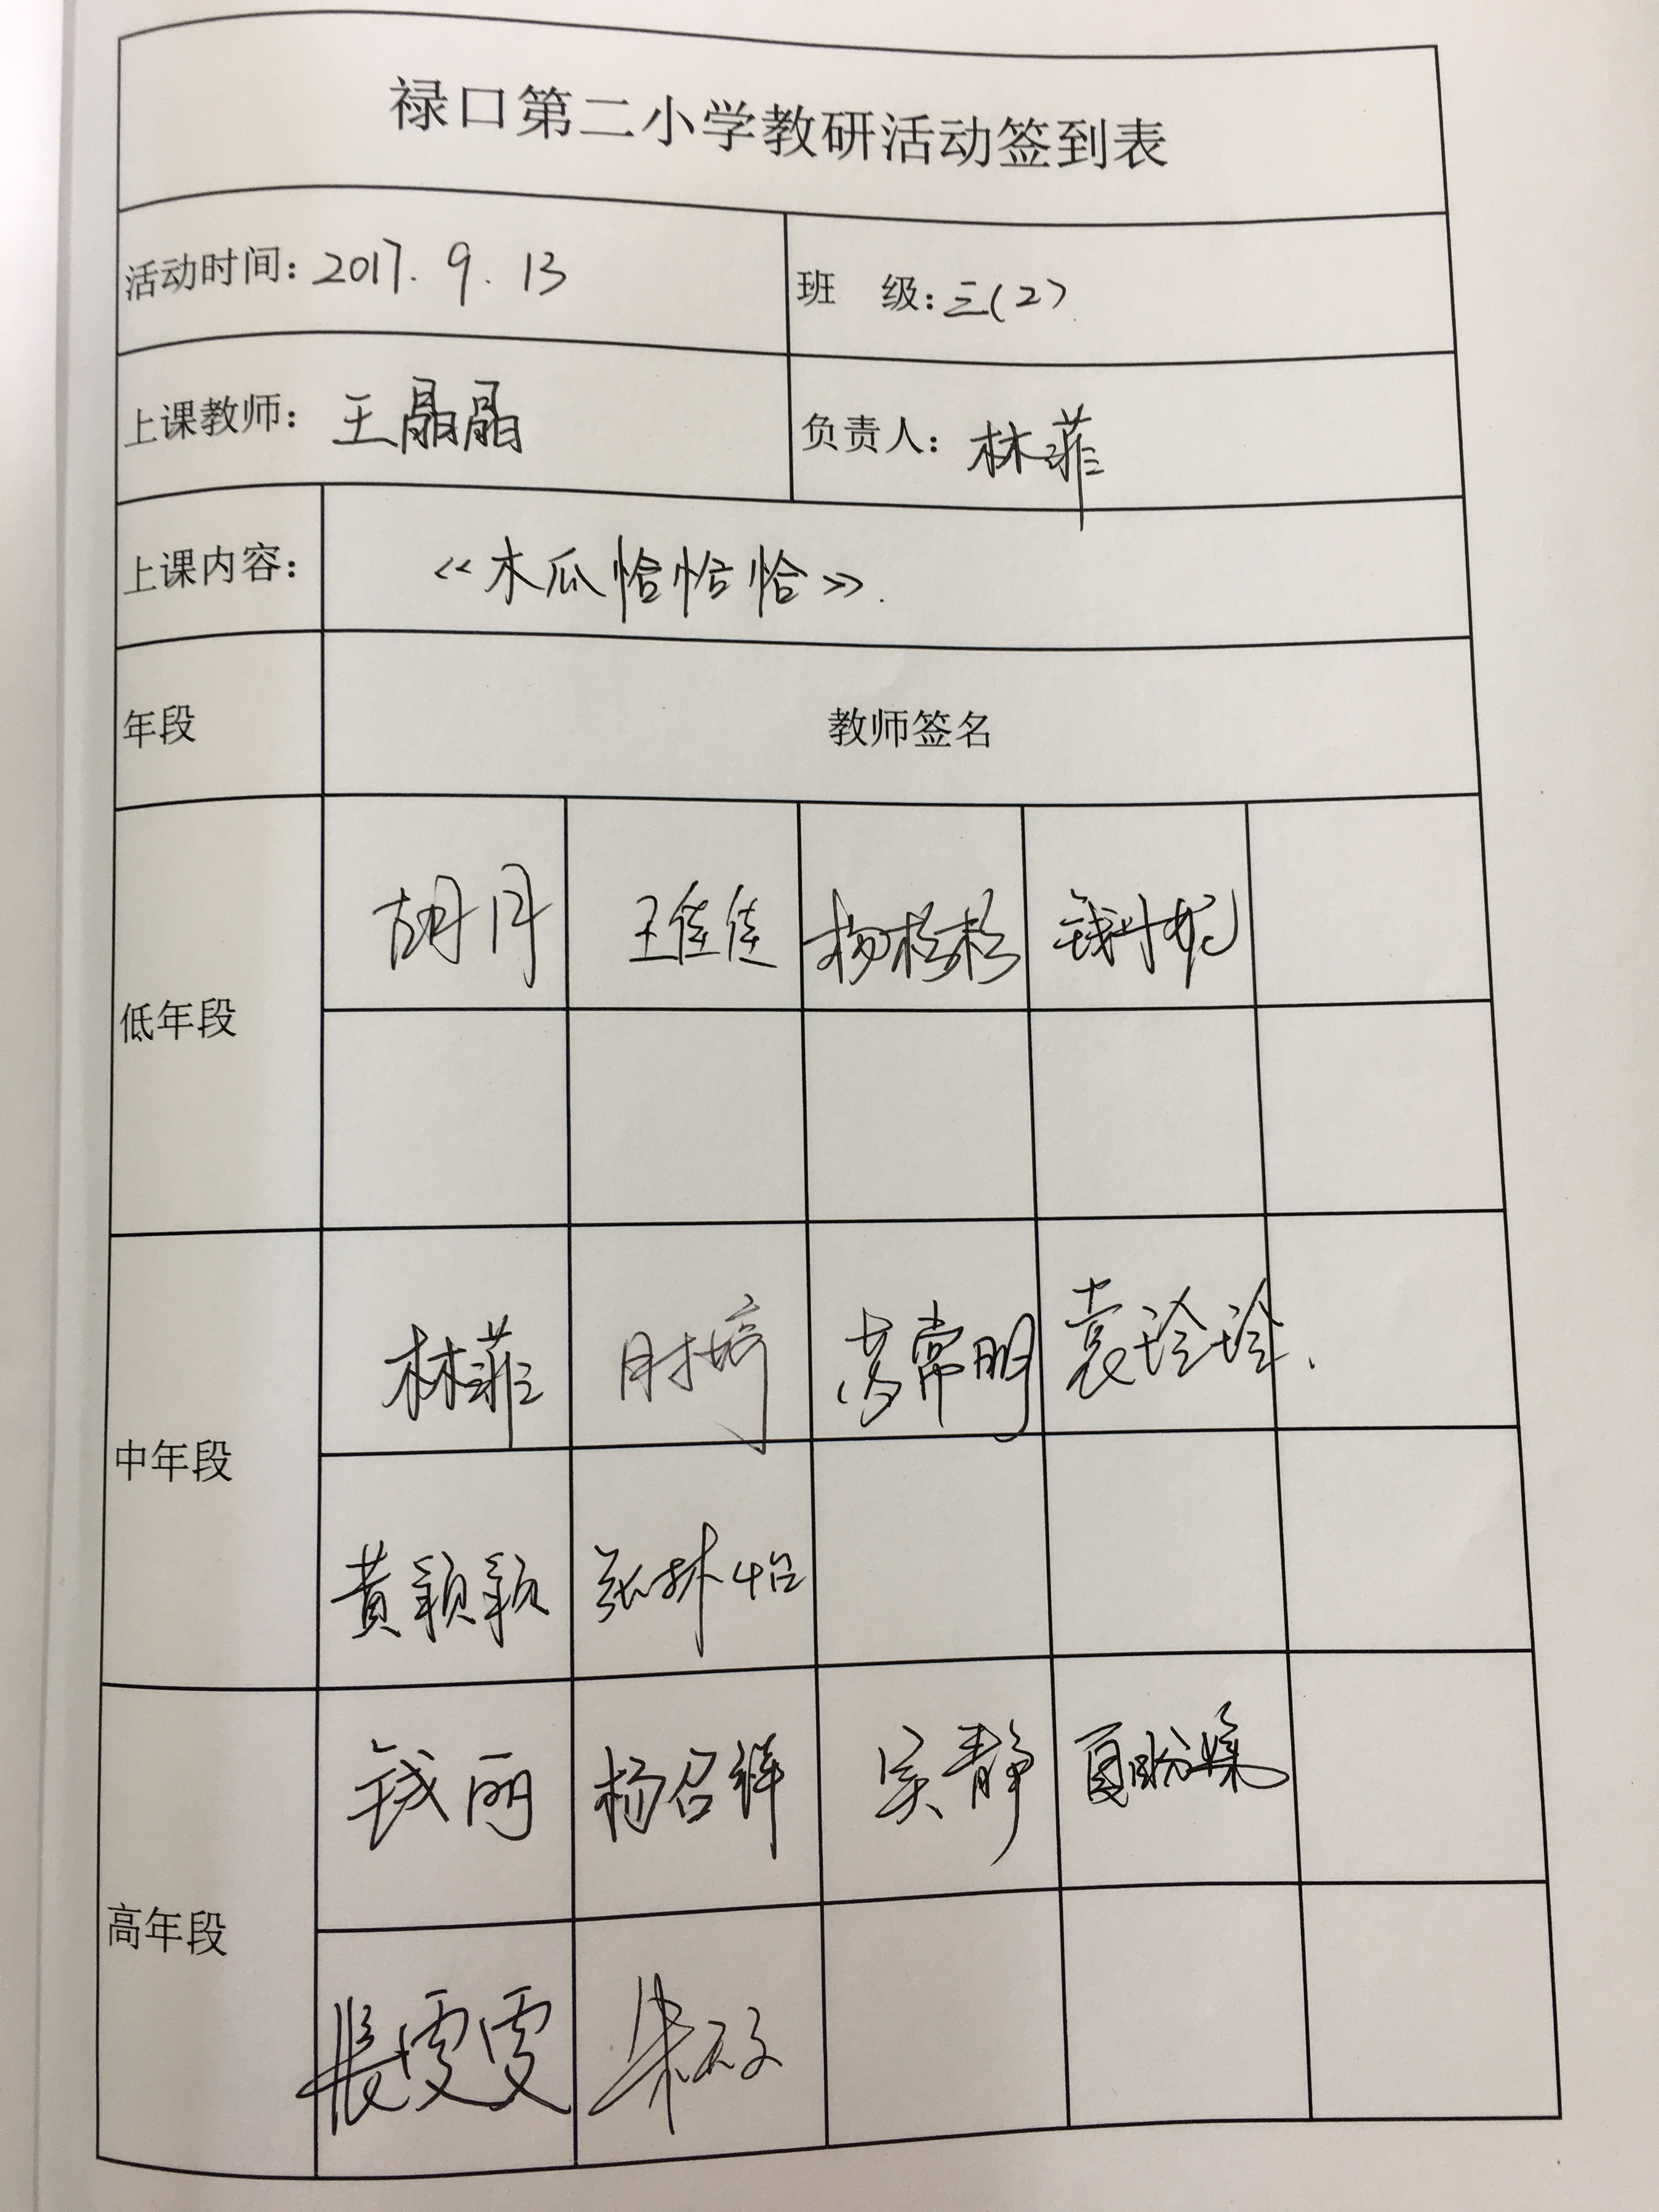 禄口第二小学教研活动签到表
活动时间：2017.9.13 班 级：三(2)
上课教师：王晶晶 负责人：林菲
上课内容：《木瓜恰恰恰》.
年段 教师签名
胡月 王佳佳 杨杉杉
低年段
林菲 葛常明 袁玲玲.
中年段
黄颖颖
钱丽 杨召祥 吴静
高年段
张雯雯